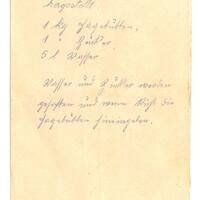 1 kg Hagebutten,
1 " Zucker
5 l Wasser
Wasser und Zucker werden
gesotten und wenn kühl die
Hagebutten hineingeben.